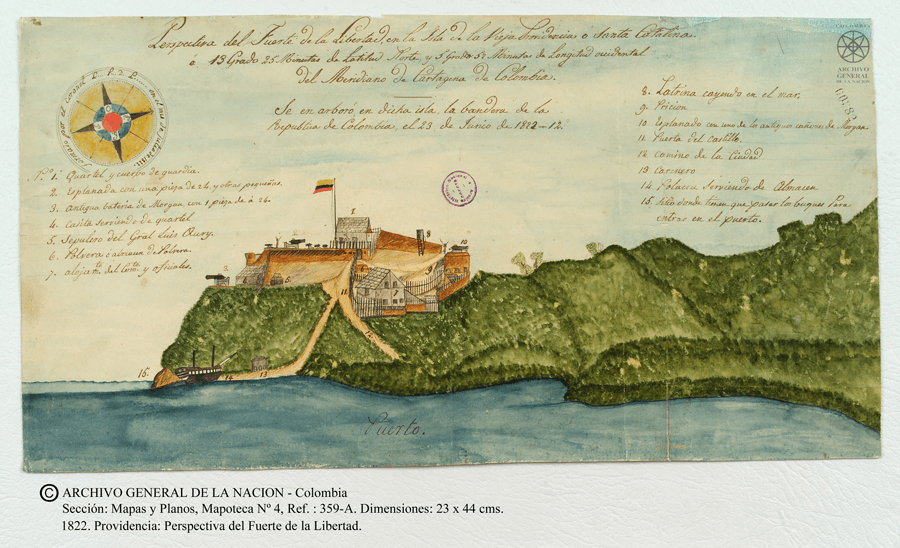 Perspectiva del Fuerte de la Libertad, en la Isla de la Vieja Providencia o Santa Catalina.
á 13 Grado 25 Minutos de Latitud Norte, y 5 Grado 50 Minutos de Longitud occidental
del Meridiano de Cartagena de Colombia.
Se en arboró en dicha isla, la bandera de la
Republica de Colombia, el 23 de Junio de 1822 = 12.
Nº 1. Quartel y cuerpo de guardia.
2. Esplanada con una pieza de 24, y otras pequeñas.
3. Antigua bateria de Morgan, con 1 pieza de á 26.
4. Casita serviendo de quartel
5. Sepulcro del Gral Luis Aury.
6. Polvera o almacen de Polvora.
7. alojamto del Comte y oficiales.
8. Latrina cayendo en el mar.
9. Pricion
10. Esplanada con uno de los antiguos cañones de Morgan.
11. Puerta del castillo.
12. camino de la Ciudad
13. carnero
14. Polacra serviendo de Almacen
15. sitio donde tienen que pasar los buques para
entrar en el puerto.
COLOMBIA
ARCHIVO
GENERAL
DE LA NACION
1.
2
3.
4
5
7
8
9
10
11
12
13
14
15.
Puerto.
© ARCHIVO GENERAL DE LA NACION - Colombia
Sección: Mapas y Planos, Mapoteca Nº 4, Ref. : 359-A. Dimensiones: 23 x 44 cms.
1822. Providencia: Perspectiva del Fuerte de la Libertad.